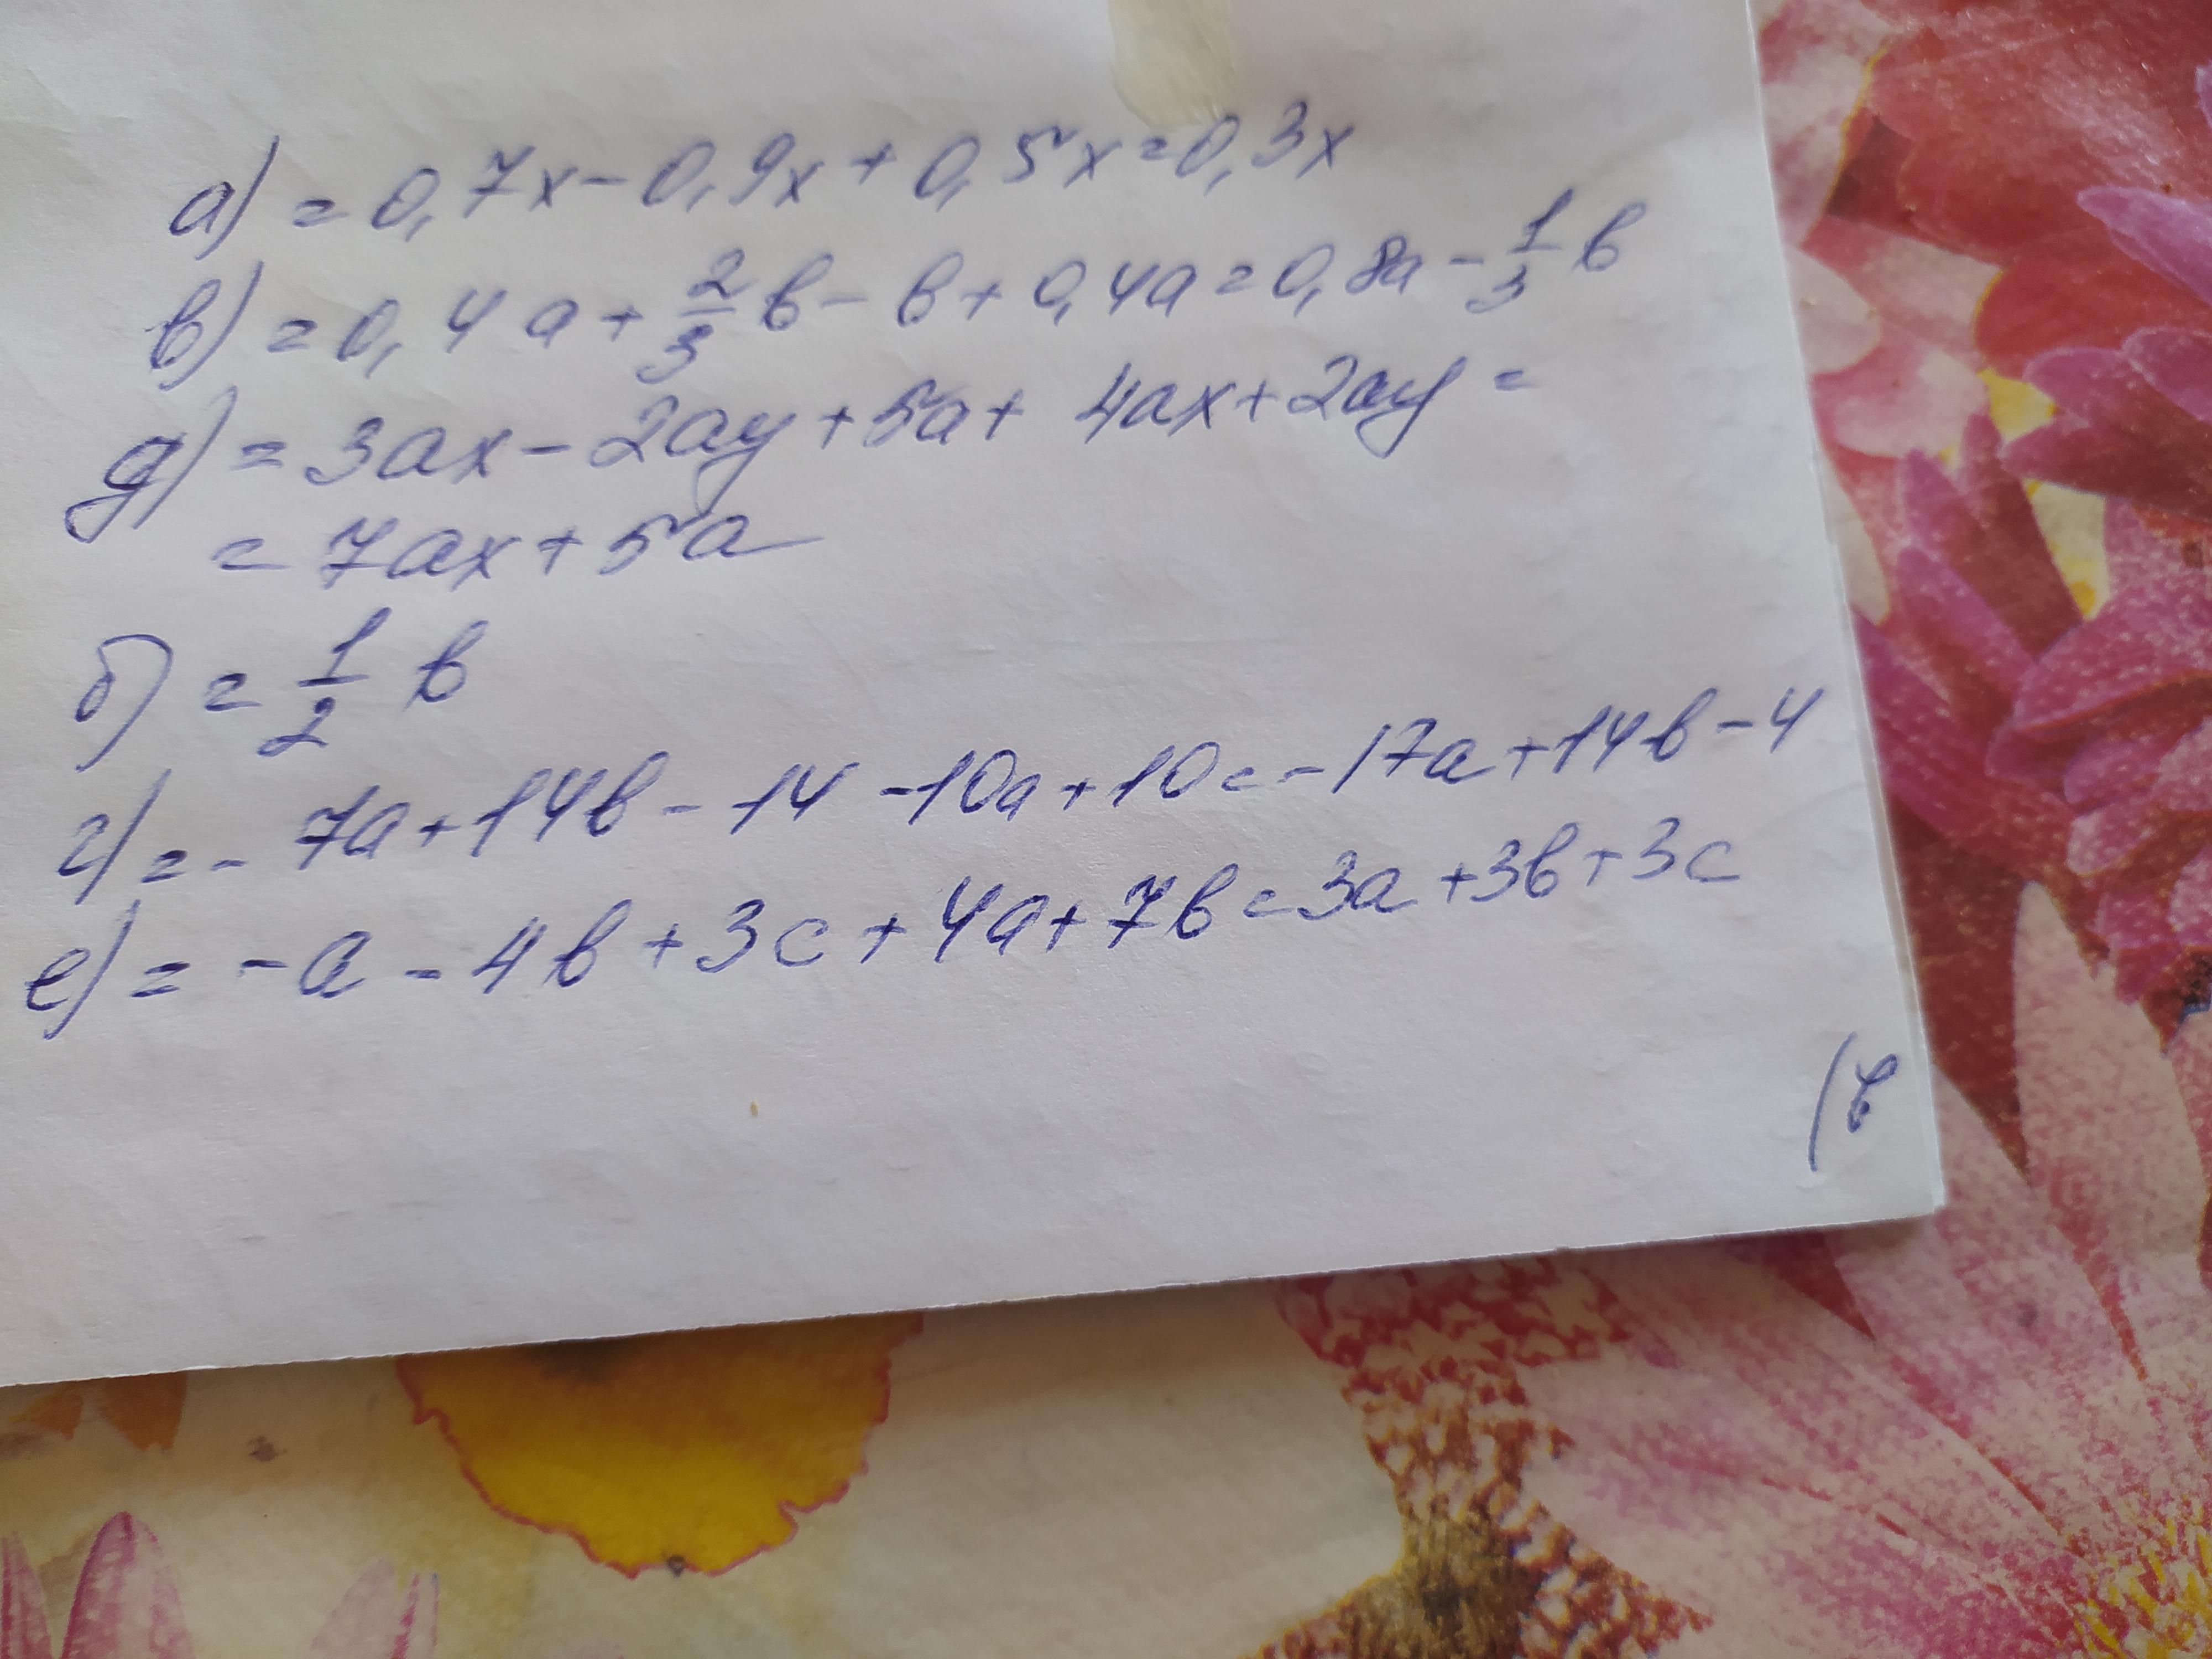 а) = 0,7x - 0,9x + 0,5x = 0,3x
в) = 0,4a + 2/3 b - b + 0,4a = 0,8a - 1/3 b
д) = 3ax - 2ay + 5a + 4ax + 2ay =
= 7ax + 5a
б) = 1/2 b
г) = - 7a + 14b - 14 - 10a + 10 = -17a + 14b - 4
е) = -a - 4b + 3c + 4a + 7b = 3a + 3b + 3c